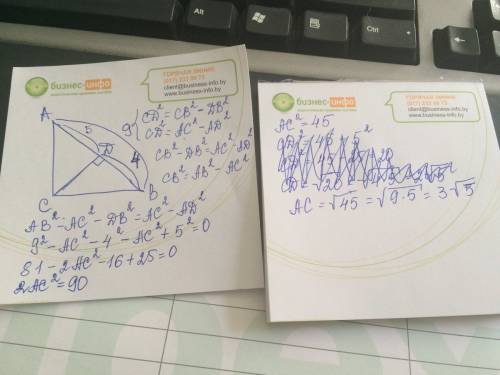 Alt
бизнес-инфо
ГОРЯЧАЯ ЛИНИЯ:
(017) 233 99 73
client@business-info.by
www.business-info.by
A
5
9
D
4
C
B
CD² = CB² - DB²
CD² = AC² - AD²
CB² - DB² = AC² - AD²
CB² = AB² - AC²
AB² - AC² - DB² = AC² - AD²
9² - AC² - 4² - AC² + 5² = 0
81 - 2AC² - 16 + 25 = 0
2AC² = 90
бизнес-инфо
ГОРЯЧАЯ ЛИНИЯ:
(017) 233 99 73
client@business-info.by
www.business-info.by
AC² = 45
AC = √45 = √9·5 = 3√5